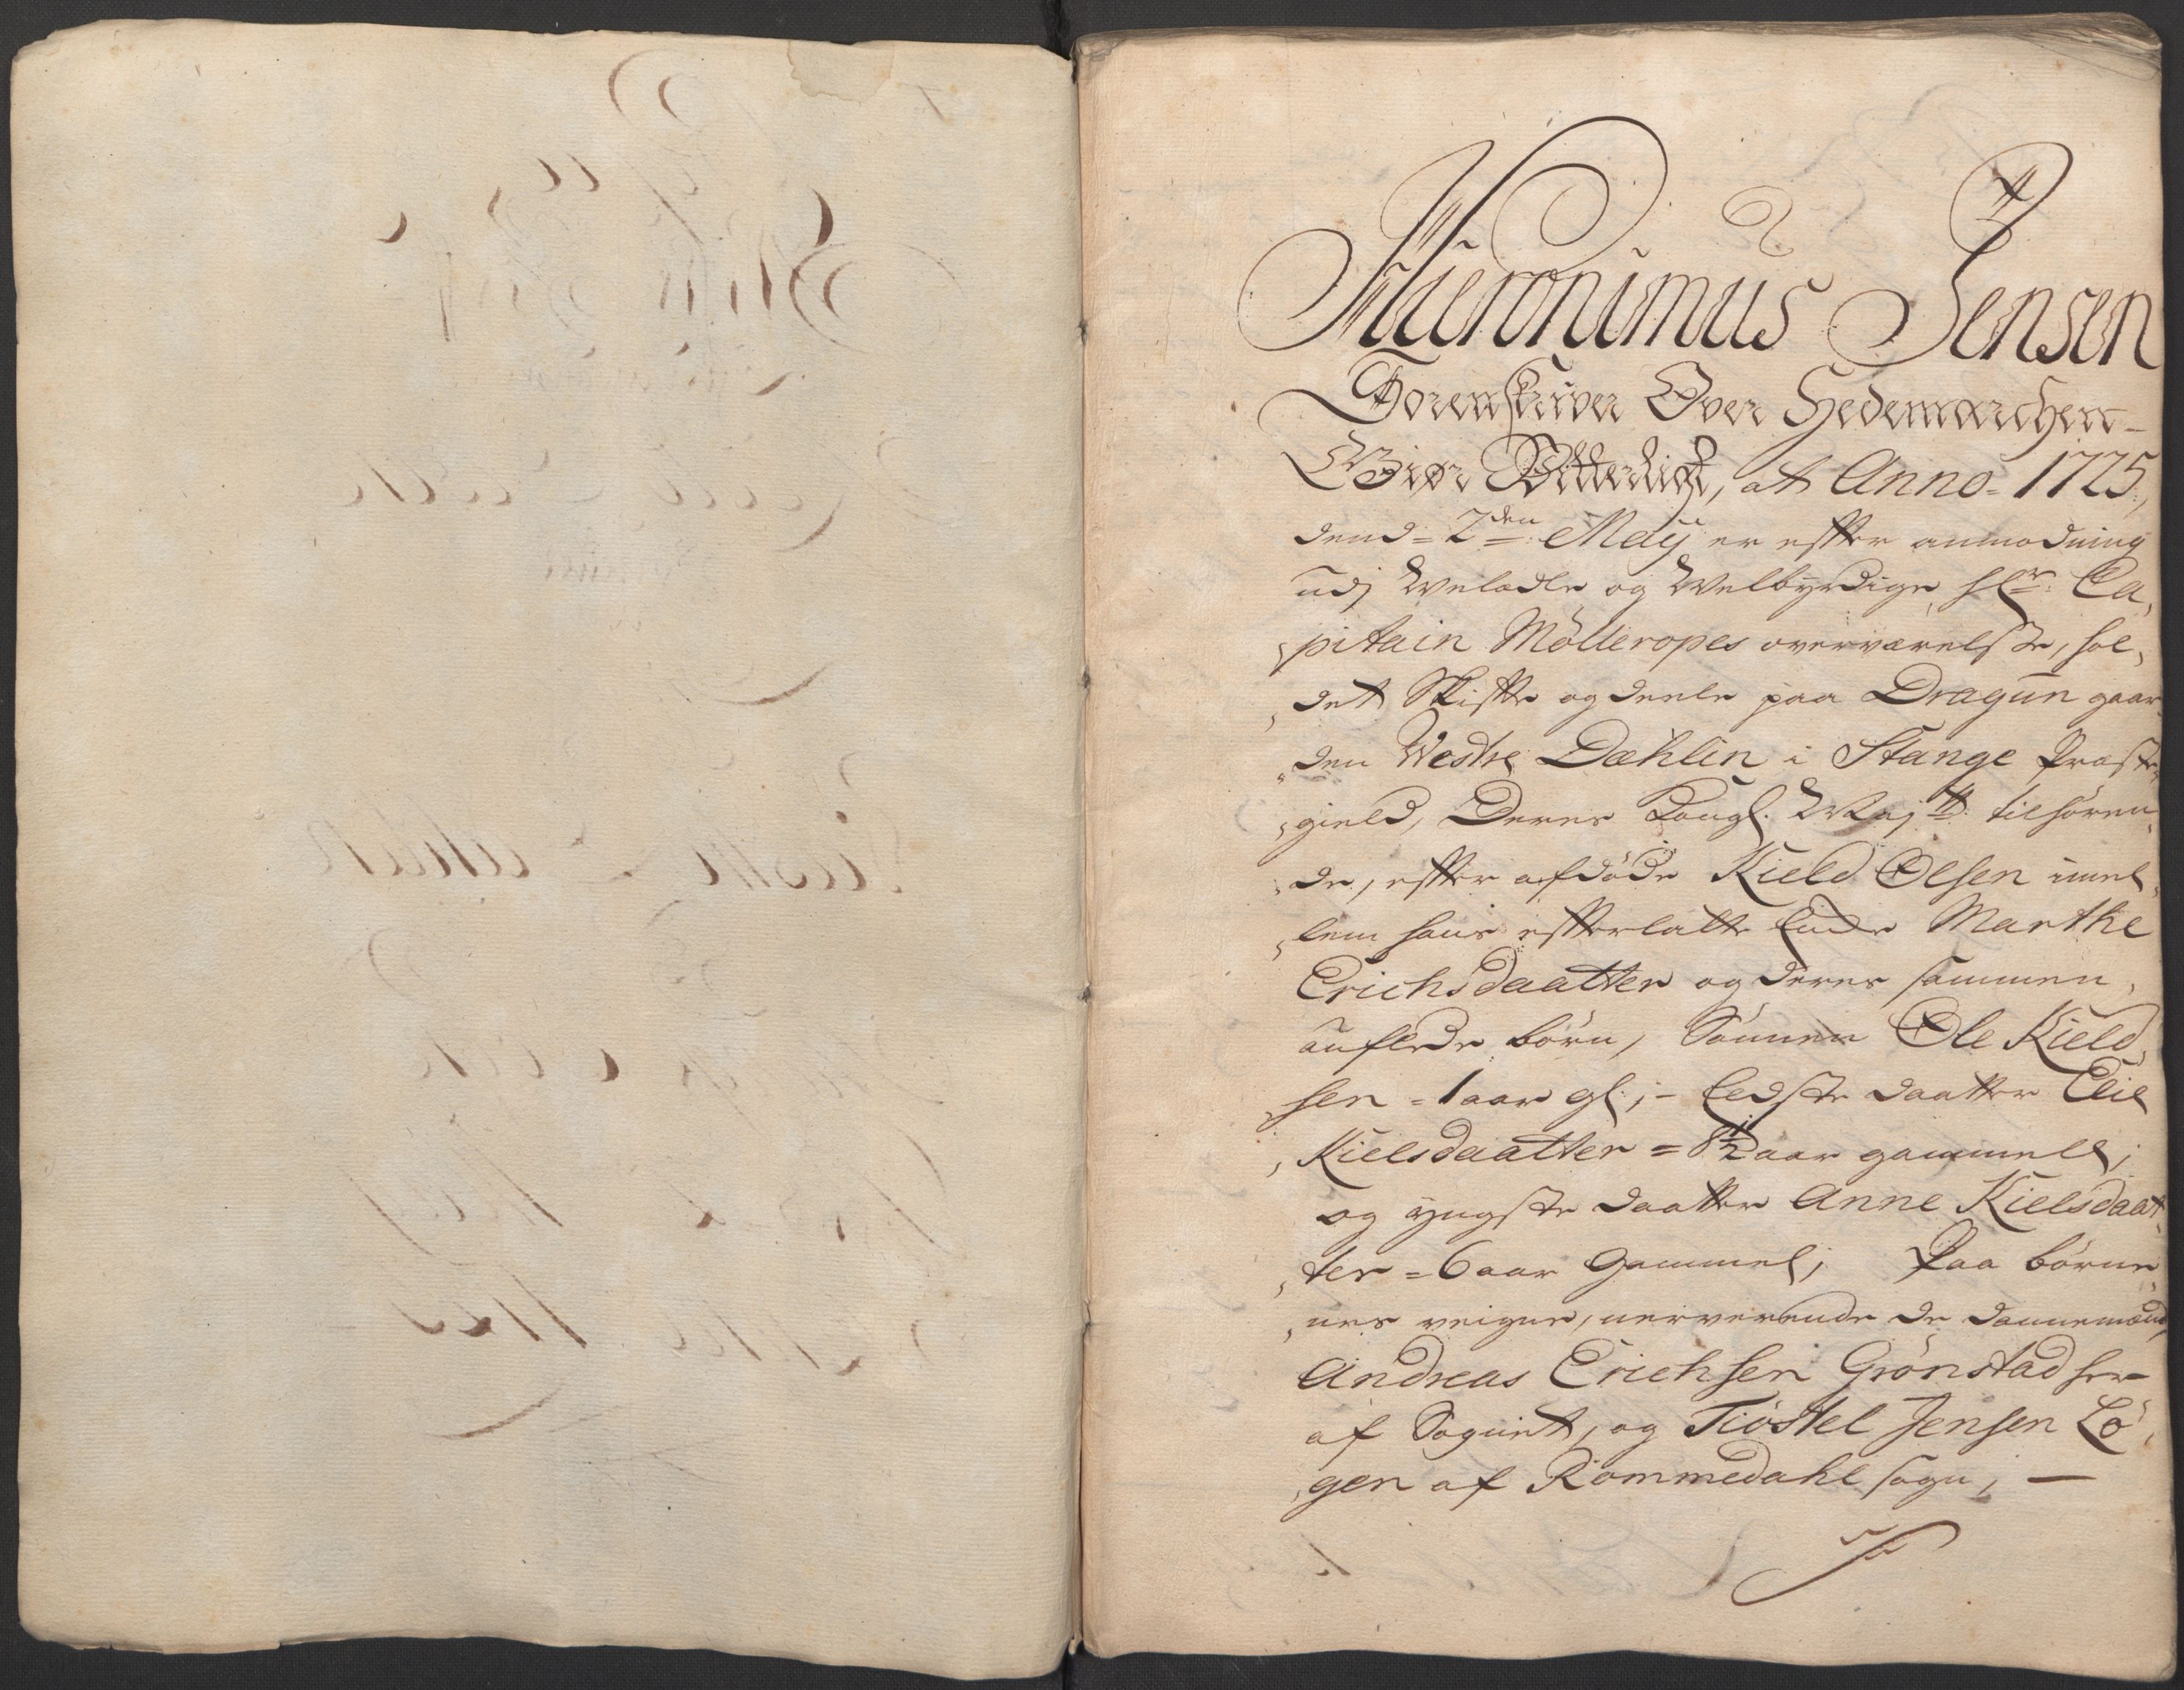 Hieronimus Jensen
Sorenskriver Over Hedemarchen
Giør Vitterligt, at Anno 1725,
dend 2den Maÿ er efter anmodning
udj Welædle og Welbÿrdige Hr: Ca,
pitain Mölleropes overværelsse, hol,
det Skiffte og deele paa Dragun gaar,
den Westre Dæhlin i Stange Præste,
gield, Deres Kongl. Maj.tt tilhören,
de, effter afdöde Kield Olsen imel,
lem hans effterlatte Encke Marthe
Erichsdaatter og deres sammen,
auflede börn, Sönnen Ole Kield,
sen = 1 aar gl; - Eedste daatter Elie
Kielsdaatter = 8½ aar gammell;
og ÿngste daatter Anne Kielsdaat,
ter = 6 aar Gammel; Paa börne,
nes veigne, nerverende de dannemænd,
Andreas Erichsen Grönstad her
af Sognet, og Tiöstel Jensen Lö,
gen af Rommedahl sogn; —